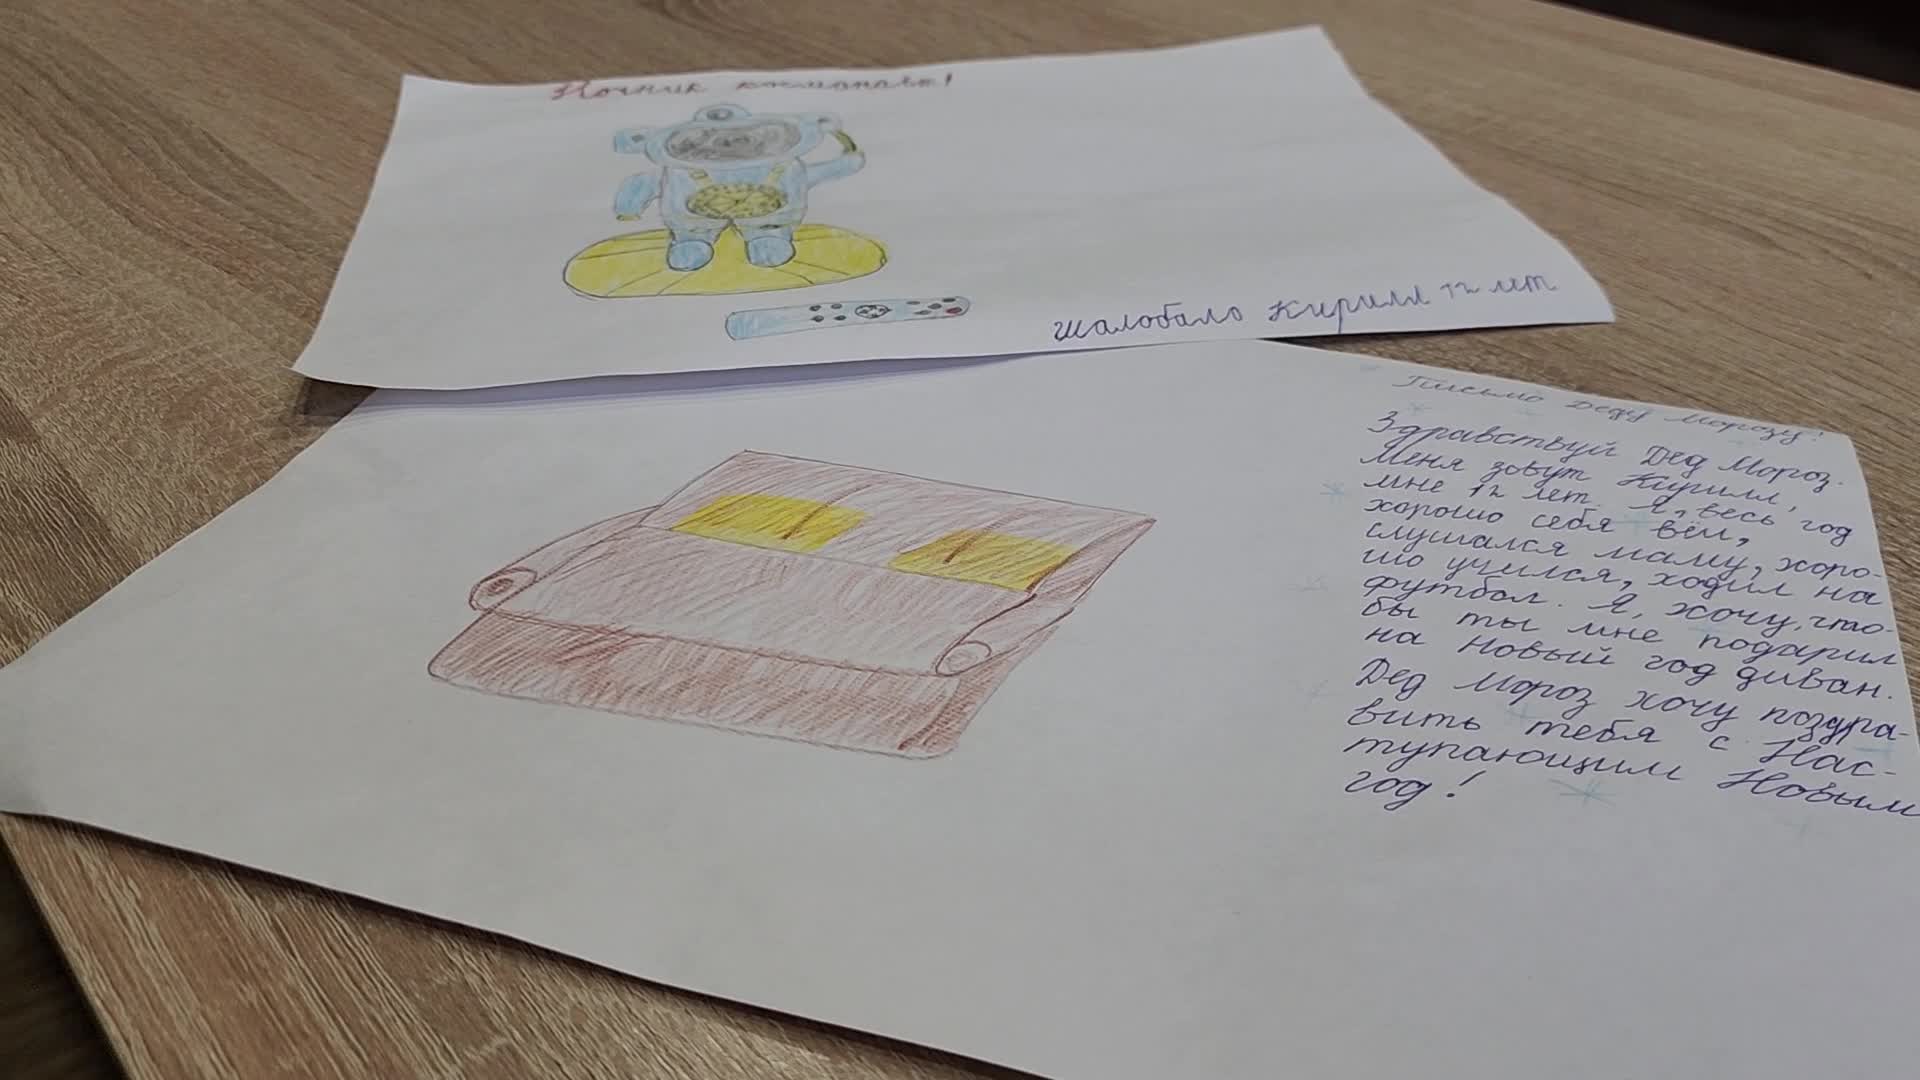 Ночник космонавт!
Шалобало Кирилл 12 лет
Письмо Деду Морозу!
Здравствуй Дед Мороз.
Меня зовут Кирилл,
мне 12 лет. Я, весь год
хорошо себя вёл,
слушался маму, хоро-
шо учился, ходил на
футбол. Я, хочу, что-
бы ты мне подарил
на Новый год диван.
Дед Мороз хочу поздра-
вить тебя с Нас-
тупающим Новым
год!